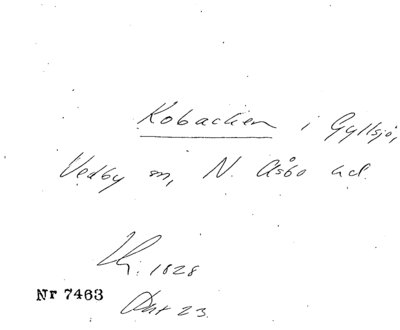 Kobacken i Gyllsjö,
Vedby sn, N. Åsbo hd.
Lh. 1828
Nr 7463
Akt 23.